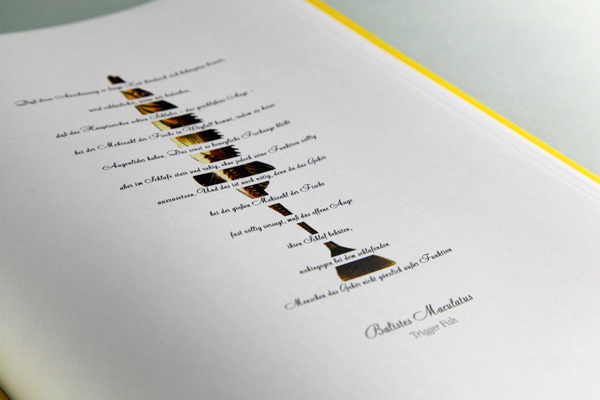 Daß diese Anschauung so lange Zeit bestand und behauptet
wird erklärlicher, wenn wir bedenken,
daß das Hauptzeichen echten Schlafes - das geschlossene Auge -
bei der Mehrzahl der Fische in Wegfall kommt, indem sie keine
Augenlider haben. Das sonst so bewegliche Fischauge bleibt
aber im Schlafe starr und ruhig, ohne jedoch seine Funktion völlig
auszusetzen. Und das ist auch nötig, denn da das Gehör
bei der großen Mehrzahl der Fische
fast völlig versagt, muß das offene Auge
ihren Schlaf behüten,
wohingegen bei dem schlafenden
Menschen das Gehör nicht gänzlich außer Funktion
Balistes Maculatus
Trigger Fish